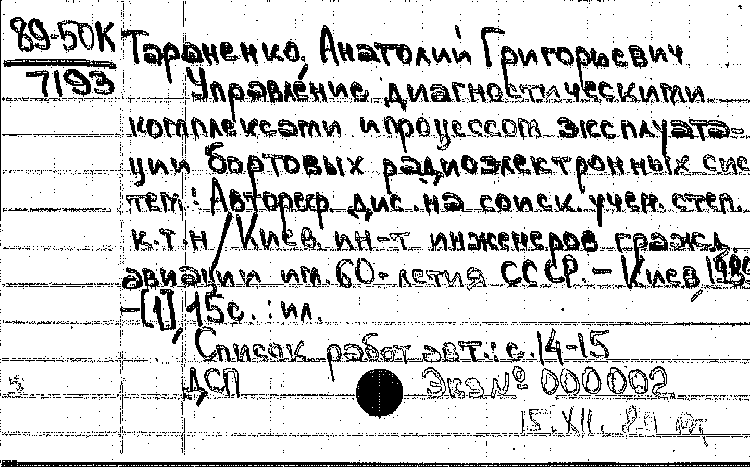 89-50К
7193
Тараненко, Анатолий Григорьевич
Управление диагностическими
комплексами и процессом эксплуата-
ции бортовых радиоэлектронных сис
тем: Автореф. дис. на соиск. учен. степ.
к.т.н / Киев. ин-т инженеров гражд.
авиации им. 60-летия СССР. - Киев, 1989
-[1], 15с. : ил.
Список работ авт.: с. 14-15
ДСП Экз № 000002
15.XII.